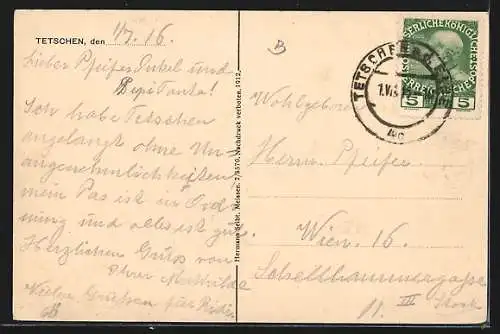 TETSCHEN, den 1/7. 16.
Lieber Pfeifer Onkel und
Pepi Tante!
Ich habe Tetschen
angelangt ohne Un-
angenehmlichkeiten
mein Pas ist in Ord
nung und alles ist gut.
Herzlichen Gruss von
Ihrer Mathilde
Viele Grüssen für
Hermann Seibt, Meissen. 2/8370, Nachdruck verboten, 1912.
B
Wohlgeboren
Herrn Pfeifer
Wien. 16.
Schellhammergasse
11. III Stock
TETSCHEN
KAISERLICHE KÖNIGLICHE
ÖSTERREICHISCHE POST
5 5